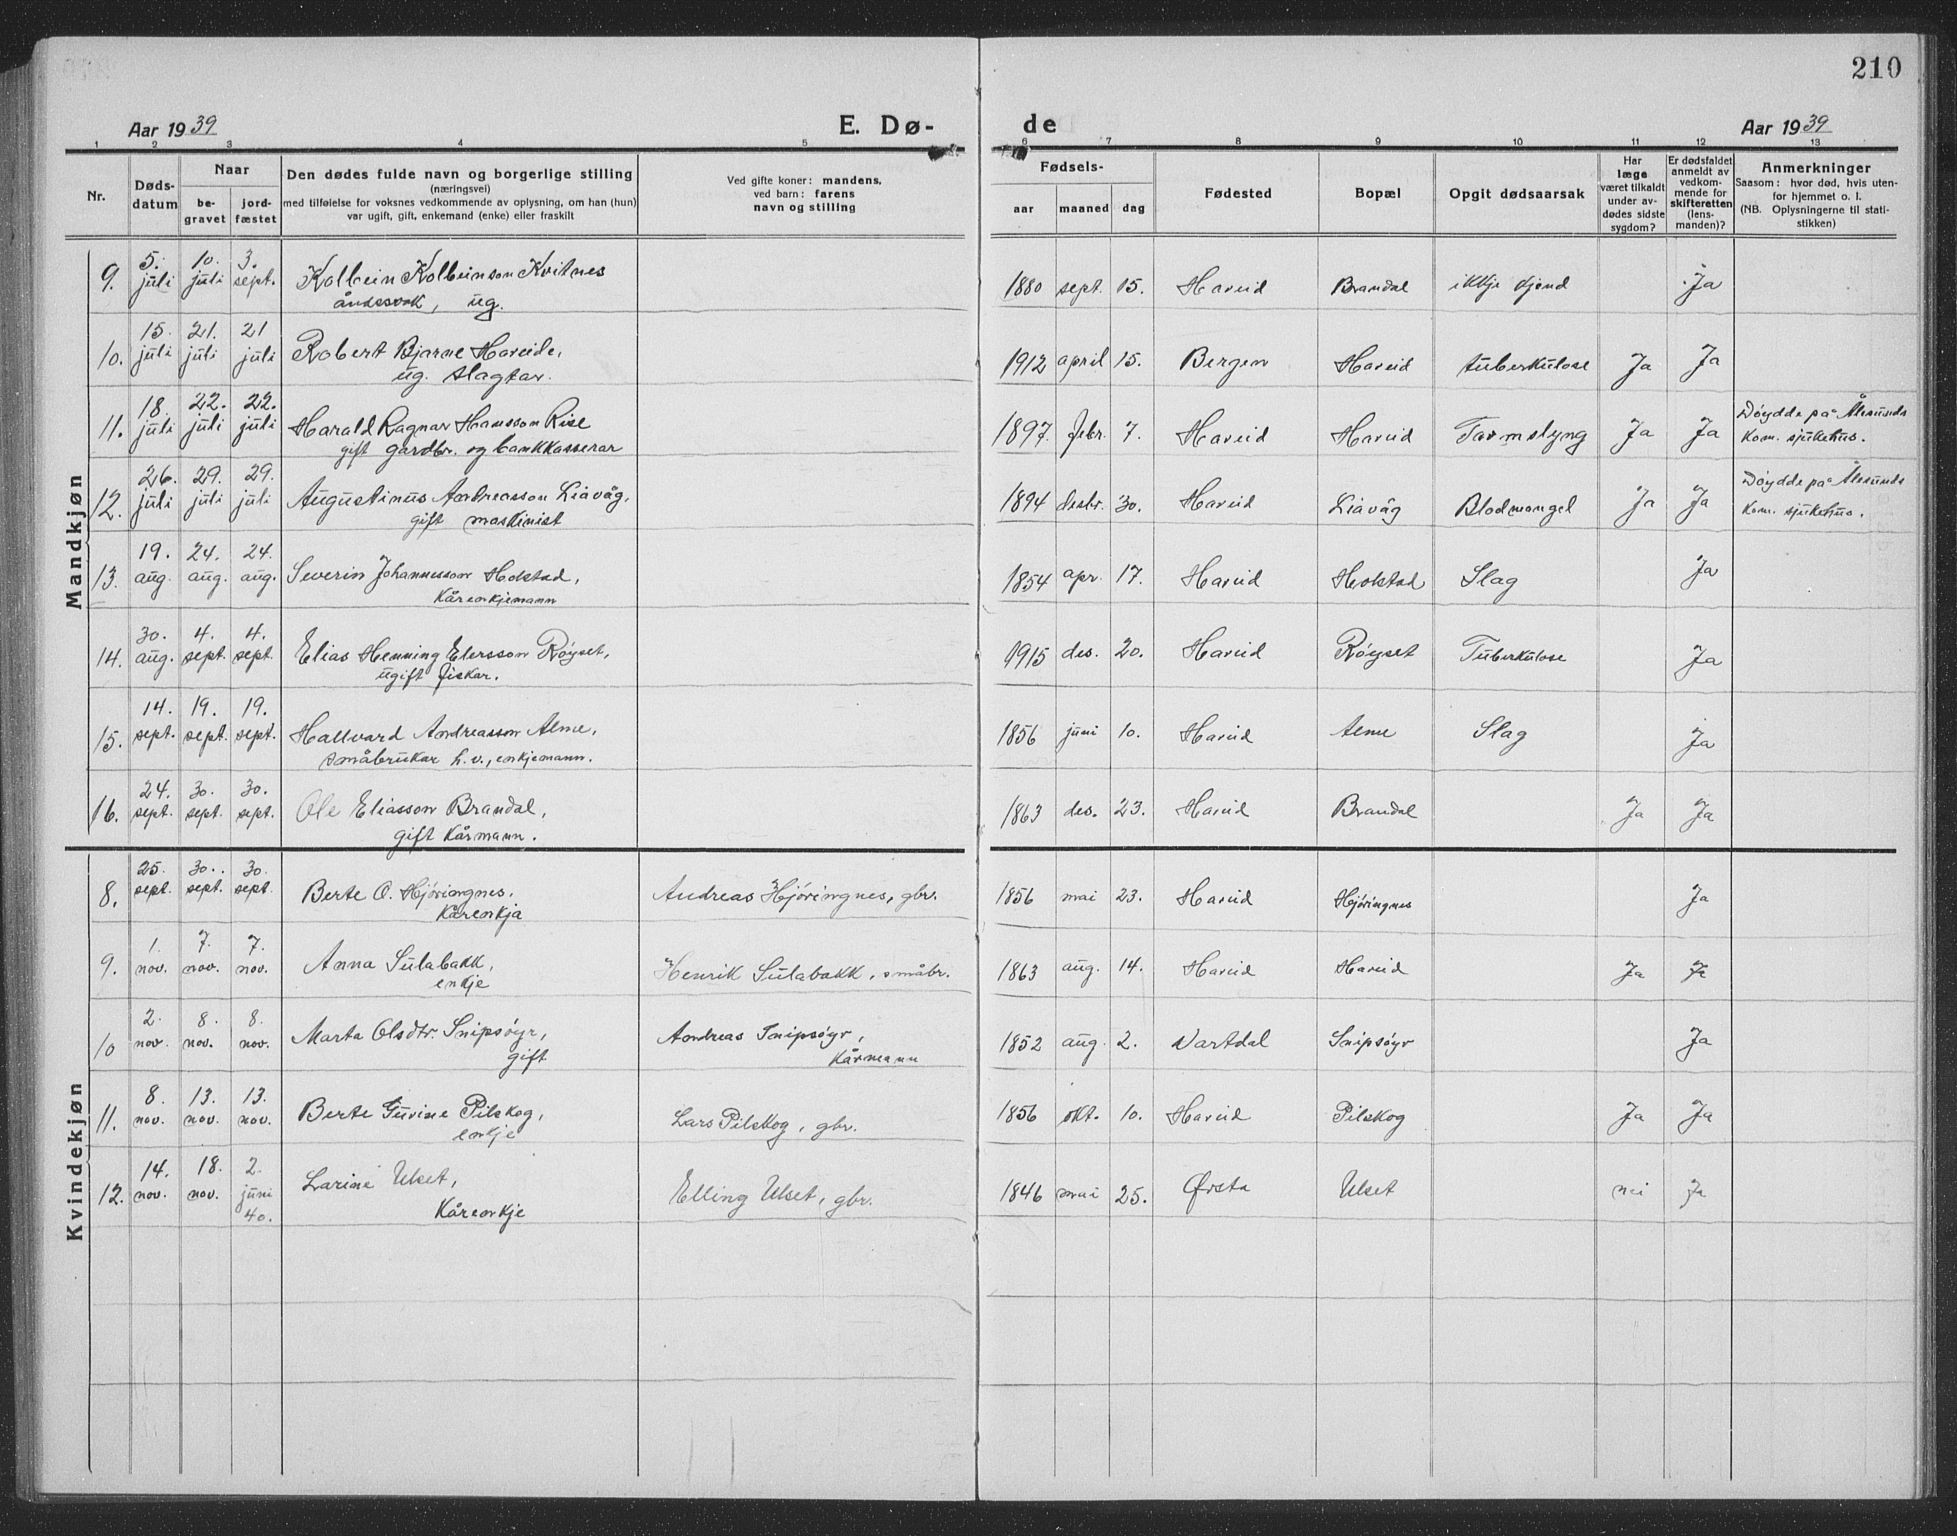 210
Aar 1939 E. Dø- de Aar 1939
1 2 3 4 5 6 7 8 9 10 11 12 13
Nr. Døds-datum Naar be-gravet jord-fæstet Den dødes fulde navn og borgerlige stilling (næringsvei) med tilføielse for voksnes vedkommende av oplysning, om han (hun) var ugift, gift, enkemand (enke) eller fraskilt Ved gifte koner: mandens, ved barn: farens navn og stilling Fødsels- aar maaned dag Fødested Bopæl Opgit dødsaarsak Har læge været tilkaldt under av-dødes sidste sygdom? Er dødsfaldet anmeldt av vedkom-mende for skifteretten (lens-manden)? Anmerkninger Saasom: hvor død, hvis uten-for hjemmet o. l. (NB. Oplysningerne til stati-stikken)
Mandkjøn
9. 5. juli 10. juli 3. sept. Kolbein Kolbeinson Kvitnes åndssvak, ug. 1880 sept. 15. Hareid Brandal ikkje kjend Ja
10. 15. juli 21. juli 21 juli Robert Bjarne Hareide, ug. slagtar. 1912 april 15. Bergen Hareid tuberkulose Ja Ja
11. 18. juli 22. juli 22. juli Harald Ragnar Hansson Rise gift gardbr. og bankkasserar 1897. febr. 7. Hareid Hareid Tarmslyng Ja Ja Døydde på Ålesunds Kom. sjukehus.
12. 26. juli 29. juli 29. juli Augustinus Andreasson Liavåg, gift maskinist 1894 desbr. 30. Hareid Liavåg Blodmangel Ja Ja Døydde på Ålesunds Kom. sjukehus.
13. 19. aug. 24. aug. 24. aug. Severin Johannesson Holstad, Kårenkjemann 1854 apr. 17. Hareid Holstad Slag Ja
14. 30. aug. 4. sept. 4. sept. Elias Henning Eliasson Røyset, ugift fiskar. 1915 des. 20. Hareid Røyset Tuberkulose Ja
15. 14. sept. 19. sept. 19. sept. Hallvard Andreasson Alme, småbrukar h.v., enkjemann. 1856 juni 10. Hareid Alme Slag Ja
16. 24. sept. 30. sept. 30. sept. Ole Eliasson Brandal, gift Kårmann. 1863 des. 23. Hareid Brandal Ja Ja
Kvindekjøn
8. 25. sept. 30. sept. 30. sept. Berte O. Hjøringnes. Kårenkja Andreas Hjøringnes, gbr. 1856 mai 23. Hareid Hjøringnes Ja
9. 1. nov. 7. nov. 7. nov. Anna Sulabakk, enkje Henrik Sulabakk, småbr. 1863 aug. 14. Hareid Hareid Ja Ja
10 2. nov. 8. nov. 8. nov. Marta Olsdtr. Snipsøyr, gift Andreas Snipsøyr, Kårmann 1852 aug. 2. Vartdal Snipsøyr Ja
11. 8. nov. 13. nov. 13. nov. Berte Gurine Pilskog, enkje Lars Pilskog, gbr. 1856 okt. 10. Hareid Pilskog Ja Ja
12. 14. nov. 18. nov. 2. juni 40. Larine Ulset, Kårenkje Elling Ulset, gbr. 1846 mai 25. Ørsta Ulset nei Ja